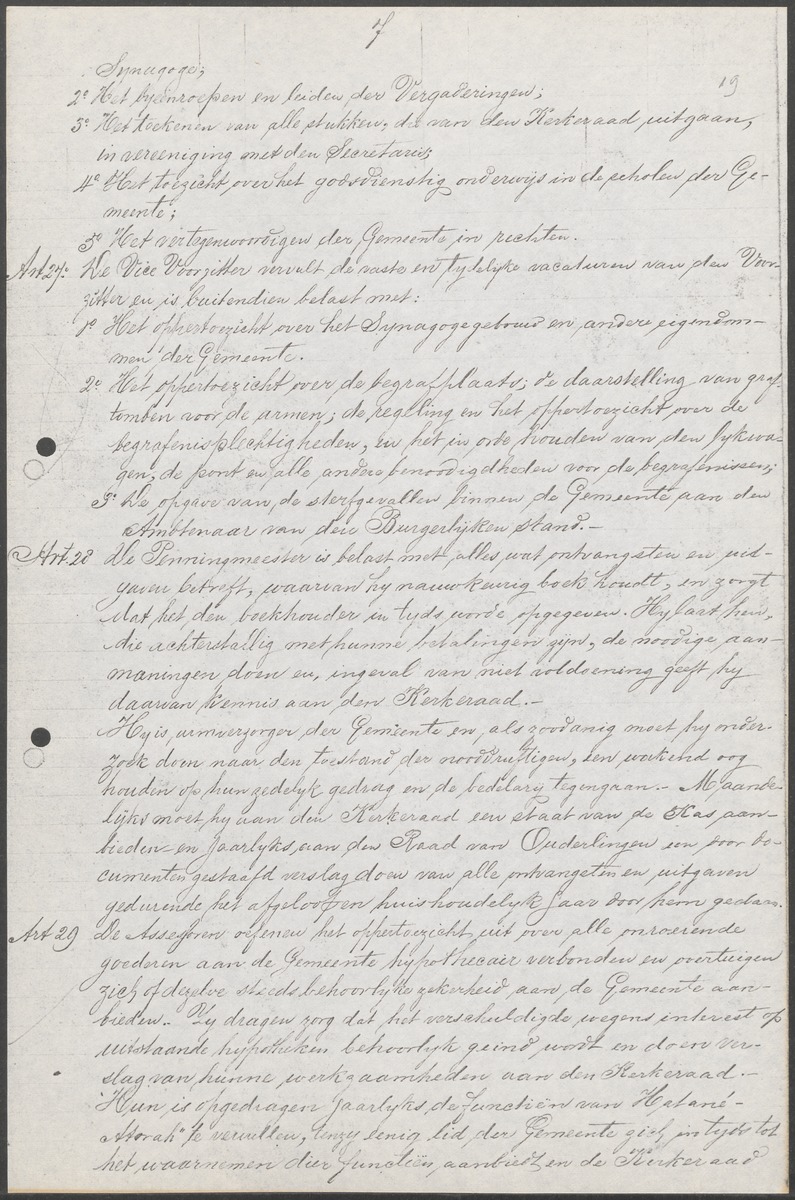 7
19
Synagoge;
2º Het byeenroepen en leiden der Vergaderingen;
3º Het teekenen van alle stukken, die van den Kerkeraad uitgaan,
in vereeniging met den Secretaris;
4º Het toezicht over het godsdienstig onderwijs in de scholen der Ge-
meente;
5º Het vertegenwoordigen der Gemeente in rechten.
Art. 27. De Vice Voorzitter vervult de vaste en tydelyke vacaturen van den Voor-
zitter en is buitendien belast met:
1º Het oppertoezicht over het Synagogegebouw en andere eigendom-
men der Gemeente.
2º Het oppertoezicht over de begrafplaats; de daarstelling van graf-
tomben voor de armen; de regeling en het oppertoezicht over de
begrafenisplechtigheden, en het in orde houden van den lykwa-
gen, de pont en alle andere benoodigdheden voor de begrafenissen;
3º De opgave van de sterfgevallen binnen de Gemeente aan den
Ambtenaar van den Burgerlyken stand.-
Art. 28 De Penningmeester is belast met alles wat ontvangsten en uit-
gaven betreft, waarvan hy nauwkeurig boek houdt, en zorgt
dat het den boekhouder in tyds worde opgegeven. Hy laat hen,
die achterstallig met hunne betalingen zijn, de noodige aan-
maningen doen en, ingeval van niet voldoening geeft hy
daarvan kennis aan den Kerkeraad.-
Hy is armverzorger der Gemeente en, als zoodanig moet hy onder-
zoek doen naar den toestand der nooddruftigen, een wakend oog
houden op hun zedelyk gedrag en de bedelary tegengaan.- Maande-
lijks moet hy aan den Kerkeraad een staat van de Kas aan-
bieden en jaarlyks, aan den Raad van Ouderlingen een door do-
cumenten gestaafd verslag doen van alle ontvangsten en uitgaven
gedurende het afgeloopen huishoudelyk jaar door hem gedaan.
Art 29 De Assessoren oefenen het oppertoezicht uit over alle onroerende
goederen aan de Gemeente hypothecair verbonden en overtuigen
zich of dezelve steeds behoorlyke zekerheid aan de Gemeente aan-
bieden. Zy dragen zorg dat het verschuldigde wegens interest op
uitstaande hypotheken behoorlyk geind wordt en doen ver-
slag van hunne werkzaamheden aan den Kerkeraad.-
Hun is opgedragen jaarlyks de functiën van Hatané-
Atorah" te vervullen, tenzy eenig lid der Gemeente zich in tyds tot
het waarnemen dier functiën, aanbiedt en de Kerkeraad